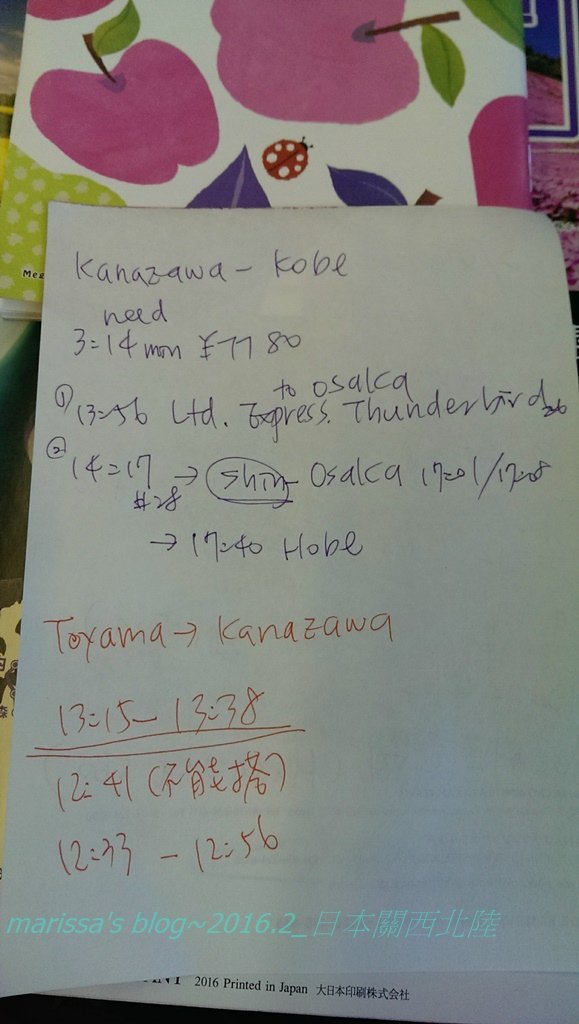 Meg
Kanazawa - Kobe
need
3:14 min ¥7780
to osaka
① 13:56 Ltd. Express. Thunderbird 26
② 14:17 → Shin Osaka 17:01/17:08
#28
→ 17:40 Hobe
Toyama → Kanazawa
13:15 - 13:38
12:41 (不能搭)
12:33 - 12:56
marissa's blog~2016.2_日本關西北陸
2016 Printed in Japan 大日本印刷株式会社